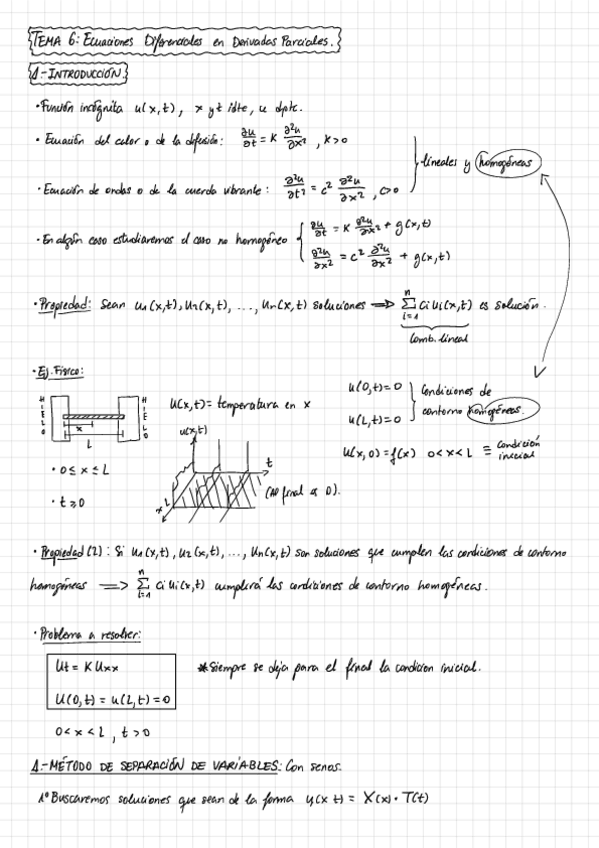 TEMA 6: Ecuaciones Diferenciales en Derivadas Parciales.
1.- INTRODUCCIÓN.
· Función incógnita u(x,t), x y t idte, u dpte.
· Ecuación del calor o de la difusión: ∂u/∂t = K ∂²u/∂x² , K>0
lineales y homogéneas
· Ecuación de ondas o de la cuerda vibrante: ∂²u/∂t² = c² ∂²u/∂x² , c>0
· En algún caso estudiaremos el caso no homogéneo { ∂u/∂t = K ∂²u/∂x² + g(x,t)
∂²u/∂x² = c² ∂²u/∂x² + g(x,t)
· Propiedad: Sean u₁(x,t), u₂(x,t), ..., uₙ(x,t) soluciones ⟹ Σⁿᵢ₌₁ cᵢuᵢ(x,t) es solución.
Comb. lineal
· Ej. Físico:
HIELO x L HIELO
u(x,t) = temperatura en x
u(0,t)=0
u(L,t)=0 } Condiciones de
contorno homogéneas.
u(x,0)=f(x) 0<x<L ≡ condición
inicial
u(x,t)
t
x L
(Al final es 0).
· 0≤x≤L
· t≥0
· Propiedad (2): Si u₁(x,t), u₂(x,t), ..., uₙ(x,t) son soluciones que cumplen las condiciones de contorno
homogéneas ⟹ Σⁿᵢ₌₁ cᵢuᵢ(x,t) cumplirá las condiciones de contorno homogéneas.
· Problema a resolver:
Ut = K Uxx
U(0,t) = u(L,t) = 0
*Siempre se deja para el final la condicion inicial.
0<x<L , t>0
1.- MÉTODO DE SEPARACIÓN DE VARIABLES: Con senos.
1º Buscaremos soluciones que sean de la forma u(x t) = X(x) · T(t)